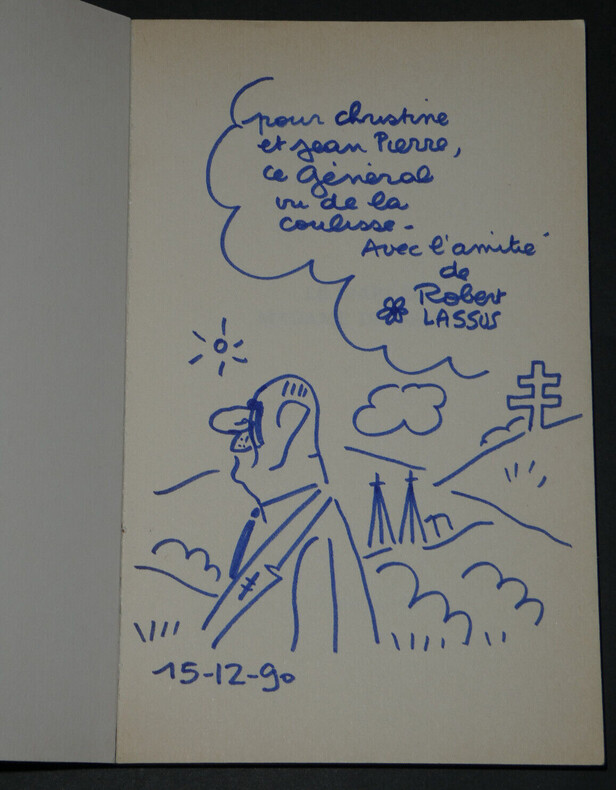 pour christine
et Jean Pierre,
ce Général
vu de la
coulisse.
Avec l'amitié
de
Robert
LASSUS
15-12-90